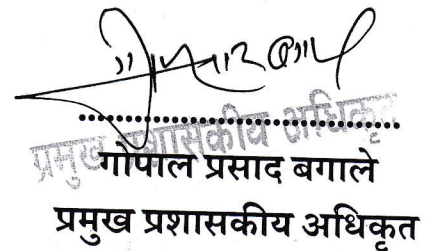 प्रमुख प्रशासकीय अधिकृत
गोपाल प्रसाद बगाले
प्रमुख प्रशासकीय अधिकृत